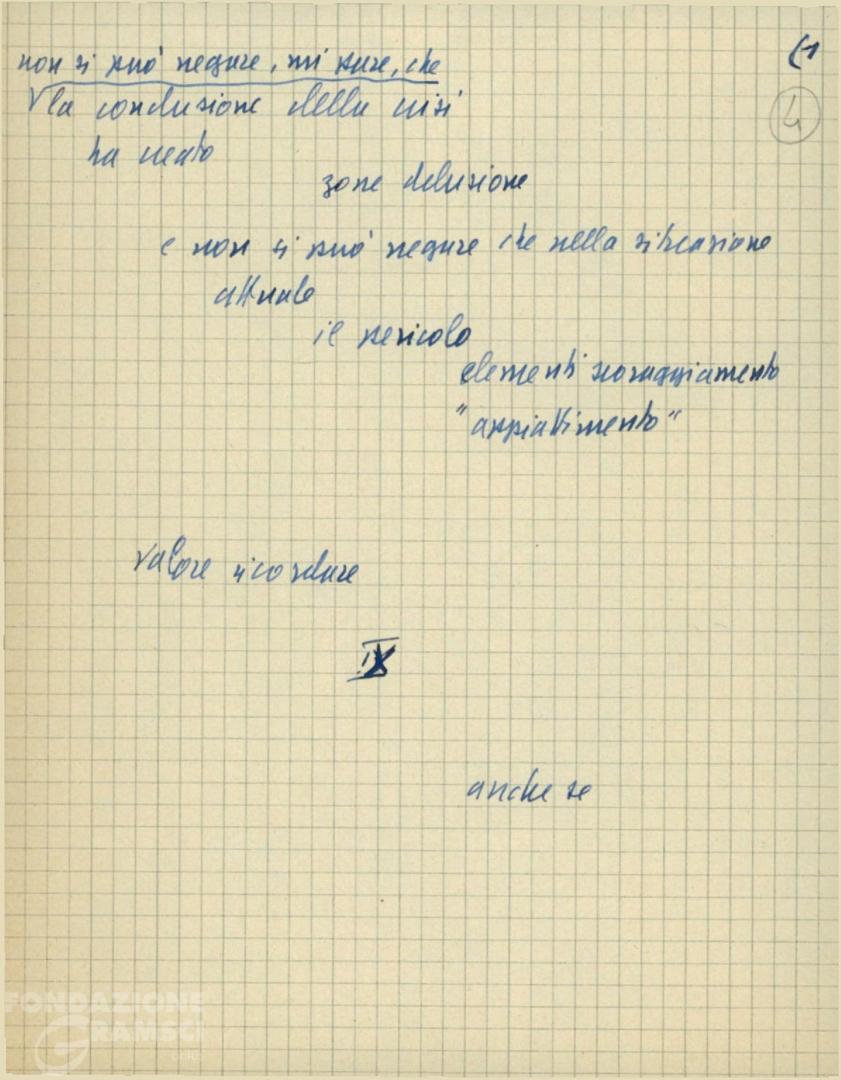 non si può negare, mi pare, che
la conclusione della crisi
ha creato
zone delusione
e non si può negare che nella situazione
attuale
il pericolo
elementi scoraggiamento
"appiattimento"
valore ricordare
IX
anche se
4
FONDAZIONE
GRAMSCI